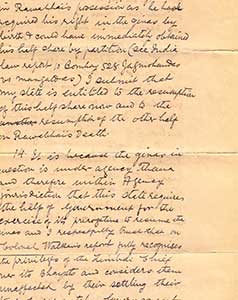 in Rawabhai's possession as he had
acquired his right in the giras by
birth & could have immediately obtained
his half share by partition (see India
Law report 10 Bombay 528 Jagmohandas
vs mangaldas) I submit that
my state is entitled to the resumption
of this half share now and to the
resumption of the other half
on Rawabhai's Death.
14 It is because the giras in
question is under agency thana
and therefore within Agency
jurisdiction that this state requires
the help of Government for the
exercise of its prerogative to resume the
giras and I respectfully trust that on
Colonel Watson's report fully recognizes
the privileges of the Limbdi Chief
over its Bhayats and considers them
unaffected by their settling their